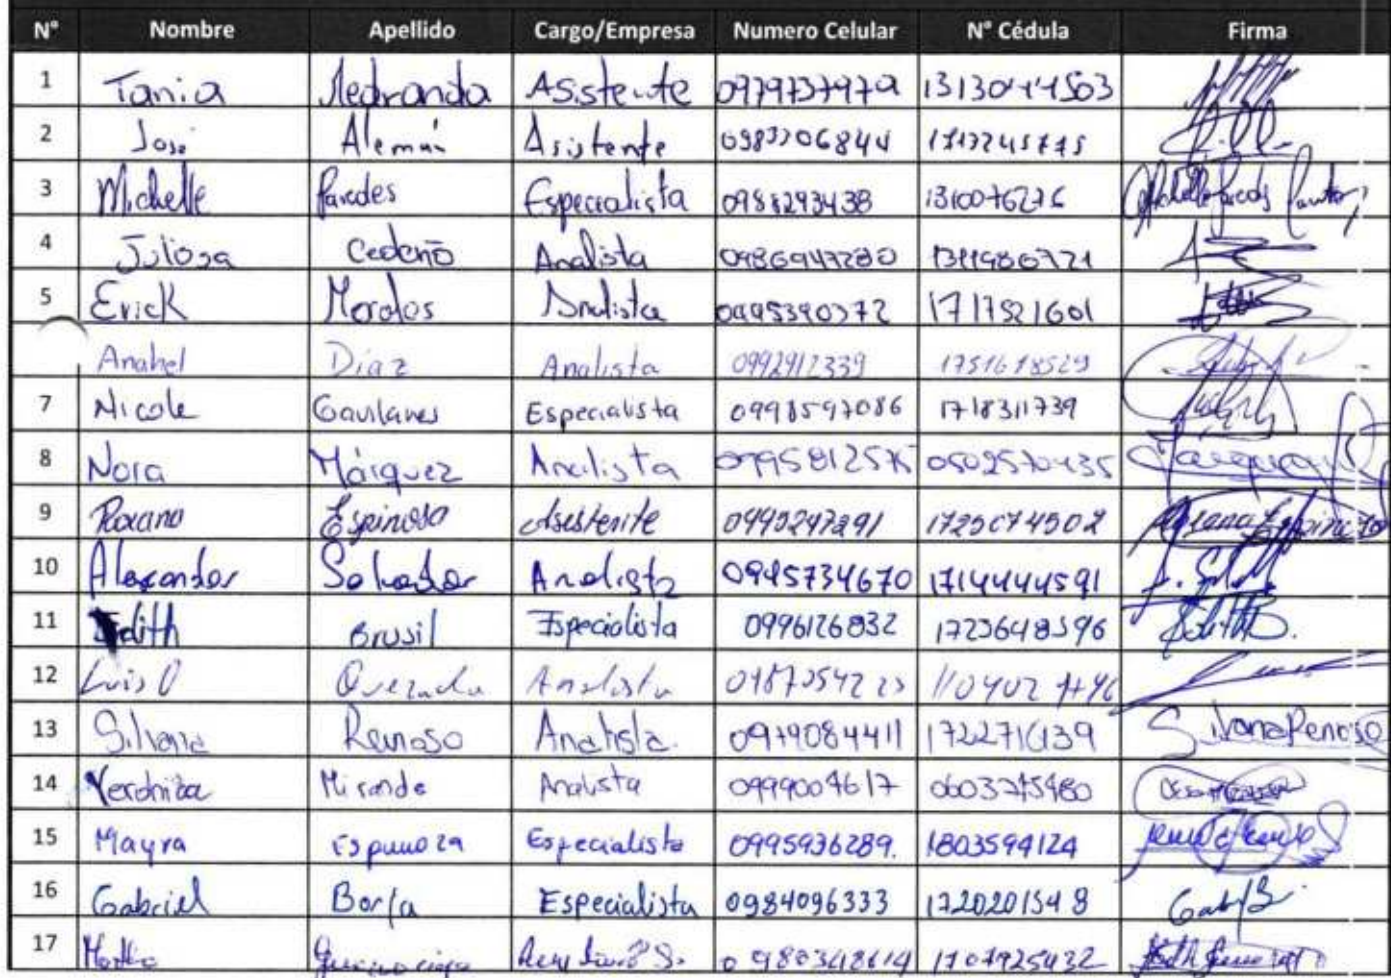 N° Nombre Apellido Cargo/Empresa Numero Celular N° Cédula Firma
1 Tania Medranda Asistente 0979737979
2 José Alemán Asistente
3 Michelle Paredes Especialista 0988293438 1310076276
4 Juliosa Cedeño Analista 0986947280
5 Erick Morales Analista 0995390372 1717521601
Anahel Díaz Analista 0992912339
7 Nicole Gavilanes Especialista 0998597086 1718311739
8 Nora Márquez Analista
9 Roxana Espinosa Asistente 1725074502 Roxana Espinoza
10 Alexander Salvador Analista 0995734670 1714444591
11 Edith Brusil Especialista 0996126832 1723648596 Edith B.
12 Luis O Quezada Analista
13 Silvana Reinoso Analista. 0979084411 Silvana Renoso
14 Verónica Miranda Analista 0999009617 0603275980
15 Mayra Espinoza Especialista 0995936289. 1803594124
16 Gabriel Borja Especialista 0984096333 1720201548 Gab/B
17 Martha 1707925432